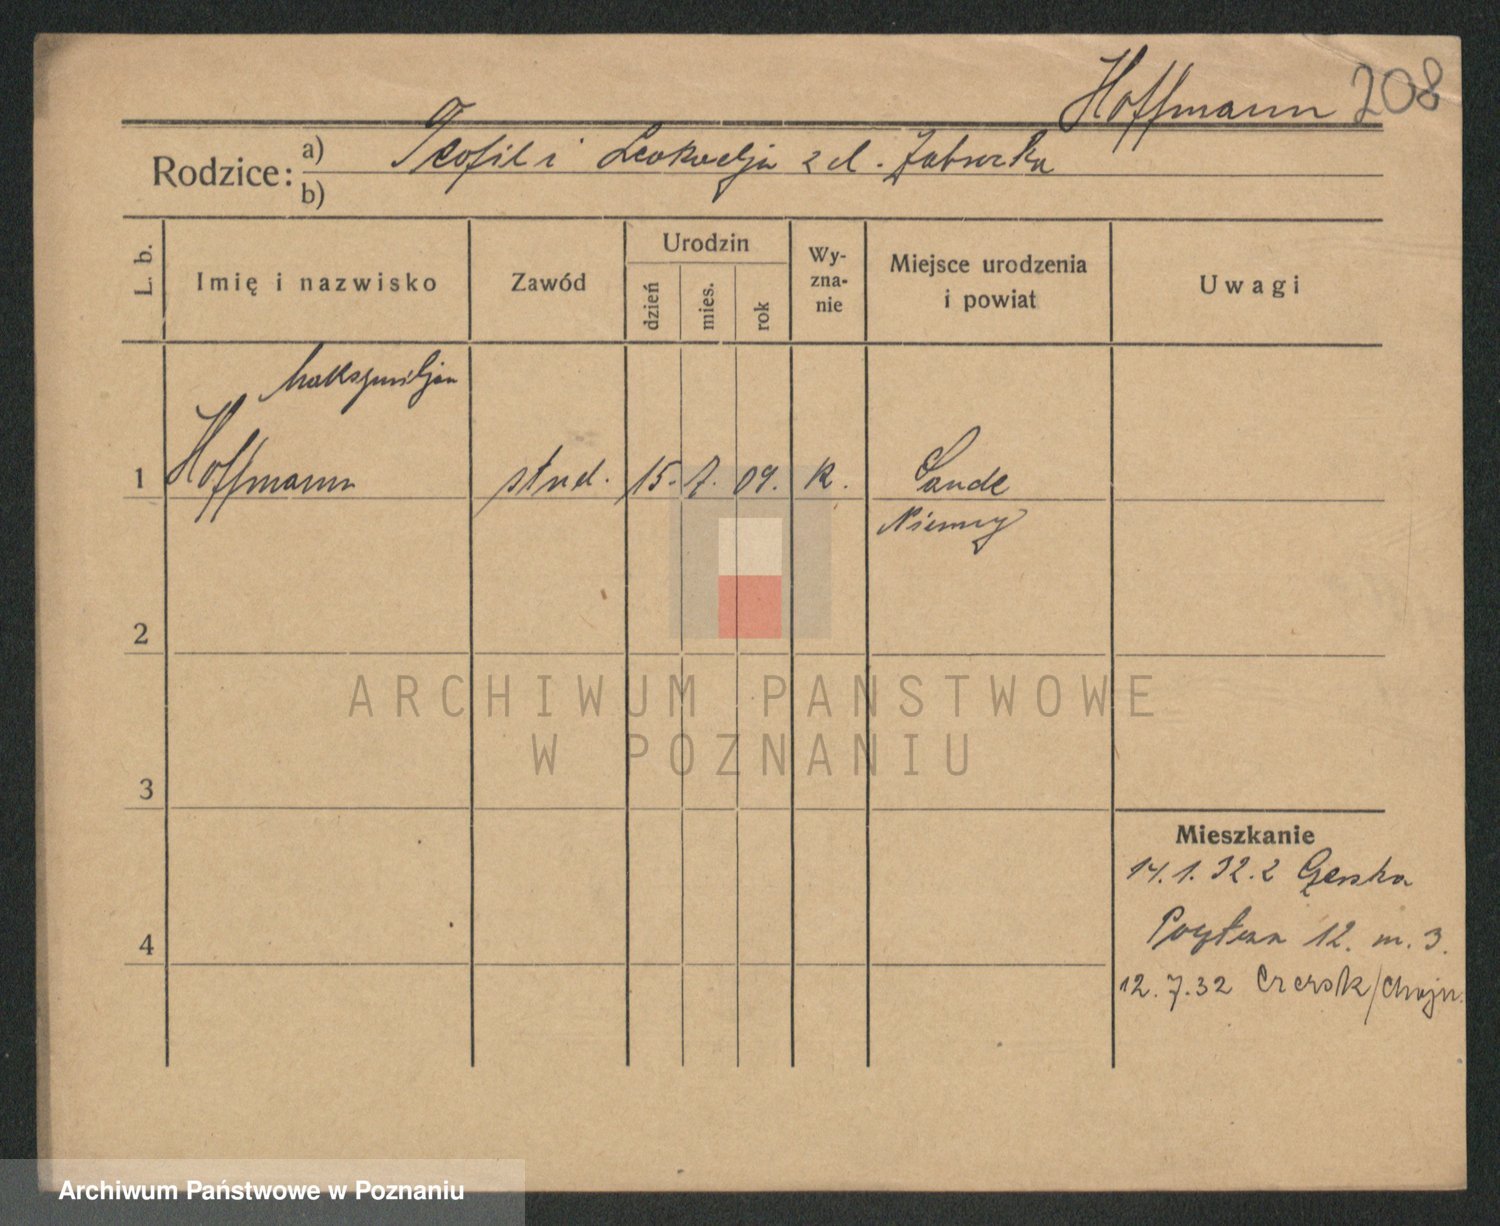 Hoffmann 208
Rodzice: a) Teofil i Leokadja z d.
b)
L. b.
Imię i nazwisko
Zawód
Urodzin
dzień
mies.
rok
Wy-
zna-
nie
Miejsce urodzenia
i powiat
Uwagi
Maksymiljan
1 Hoffmann stud. 15. 7. 09. k. Sande
Niemcy
2
ARCHIWUM PAŃSTWOWE
W POZNANIU
3
Mieszkanie
14.1.32. z
4 12. m. 3.
12.7.32 Czersk/Chojn.
Archiwum Państwowe w Poznaniu